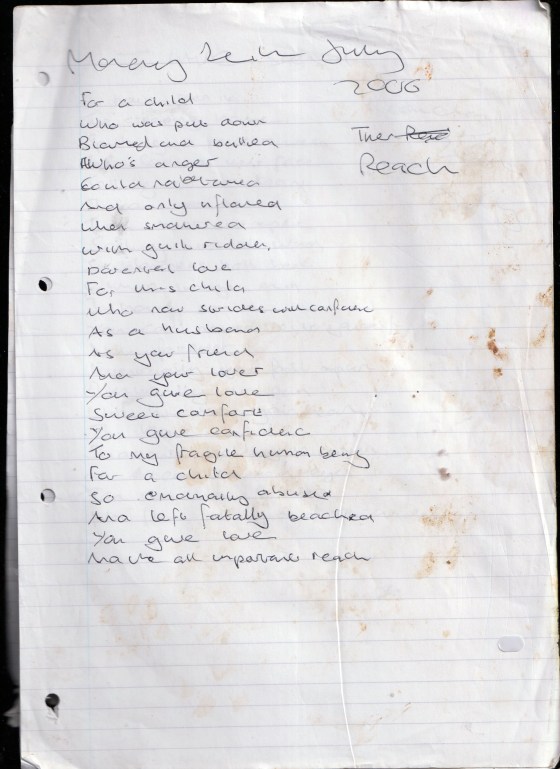 Monday July
2006
For a child
Who was put down
Blamed and bullied
Who's anger
Could not be tamed
And only inflamed
When smothered
With guilt ridden,
Perverted love
For this child
Who now strides with confidence
As a husband
As your friend
And your lover
You give love
Sweet comfort
You give confidence
To my fragile human being
For a child
So emotionally abused
And left fatally beached
You give love
all important reach
The
Reach